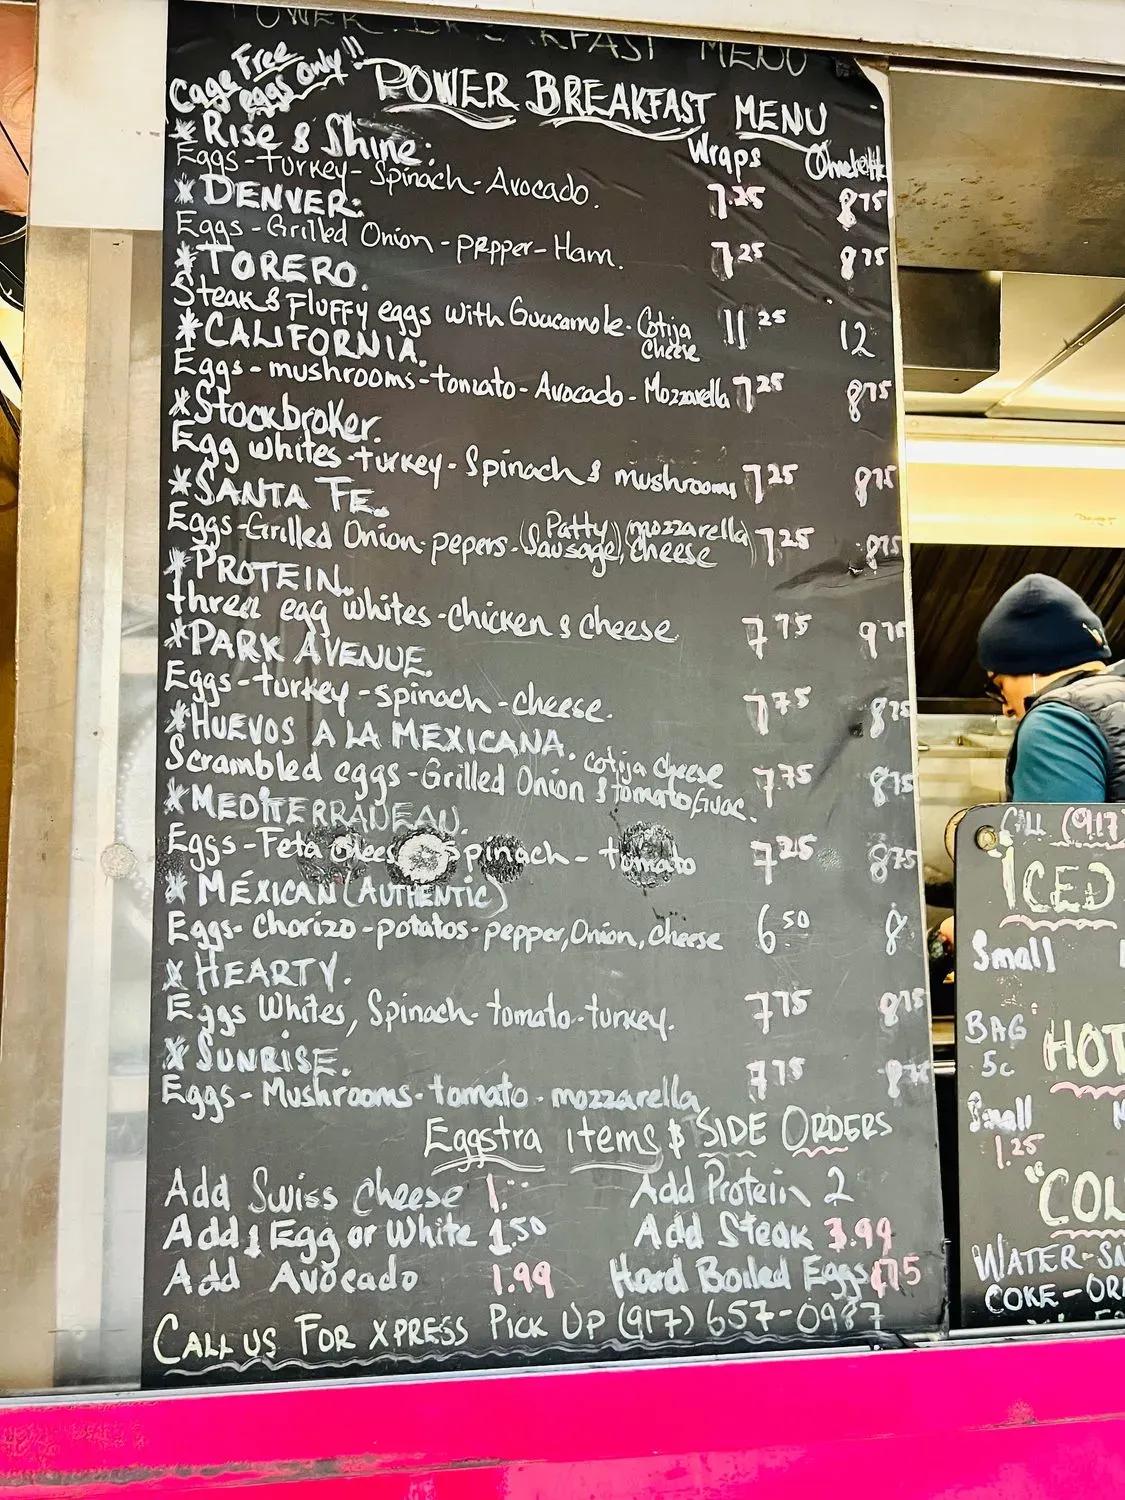 POWER BREAKFAST MENU
Cage Free eggs Only!!
POWER BREAKFAST MENU
Wraps Omelette
*Rise & Shine:
Eggs-turkey-Spinach-Avocado. 7.25 8 75
*DENVER:
Eggs-Grilled Onion-pepper-Ham. 7 25 8 75
*TORERO.
Steak & Fluffy eggs with Guacamole-Cotija cheese 11 25 12
*CALIFORNIA.
Eggs-mushrooms-tomato-Avocado-Mozzarella 7 25 8 75
*Stockbroker.
Egg whites-turkey-Spinach & mushrooms 7 25 8 75
*SANTA FE.
Eggs-Grilled Onion-pepers-(Patty Sausage), (mozzarella) cheese 7 25 8 75
*PROTEIN.
three egg whites-chicken & cheese 7 75 9 75
*PARK AVENUE.
Eggs-turkey-spinach-cheese. 7 75 8 75
*HUEVOS A LA MEXICANA.
Scrambled eggs-Grilled Onion & tomato, Guac. cotija cheese 7.75 8 75
*MEDITERRANEAU.
Eggs-Feta cheese Spinach-tomato 7 25 8 75
*MÉXICAN (AUTHENTIC)
Eggs-Chorizo-potatos-pepper, Onion, cheese 6 50 8
*HEARTY.
Eggs Whites, Spinach-tomato-turkey. 7 75 8 75
*SUNRISE.
Eggs-Mushrooms-tomato-mozzarella 7 75
Eggstra items & SIDE ORDERS
Add Swiss Cheese 1. Add Protein 2
Add 1 Egg or White 1.50 Add Steak 3.99
Add Avocado 1.99 Hard Boiled Eggs 1 75
CALL US FOR XPRESS PICK UP (917) 657-0987
CALL (917)
ICED
Small
BAG
5c
HOT
Small
1.25
"COL
WATER-
COKE-